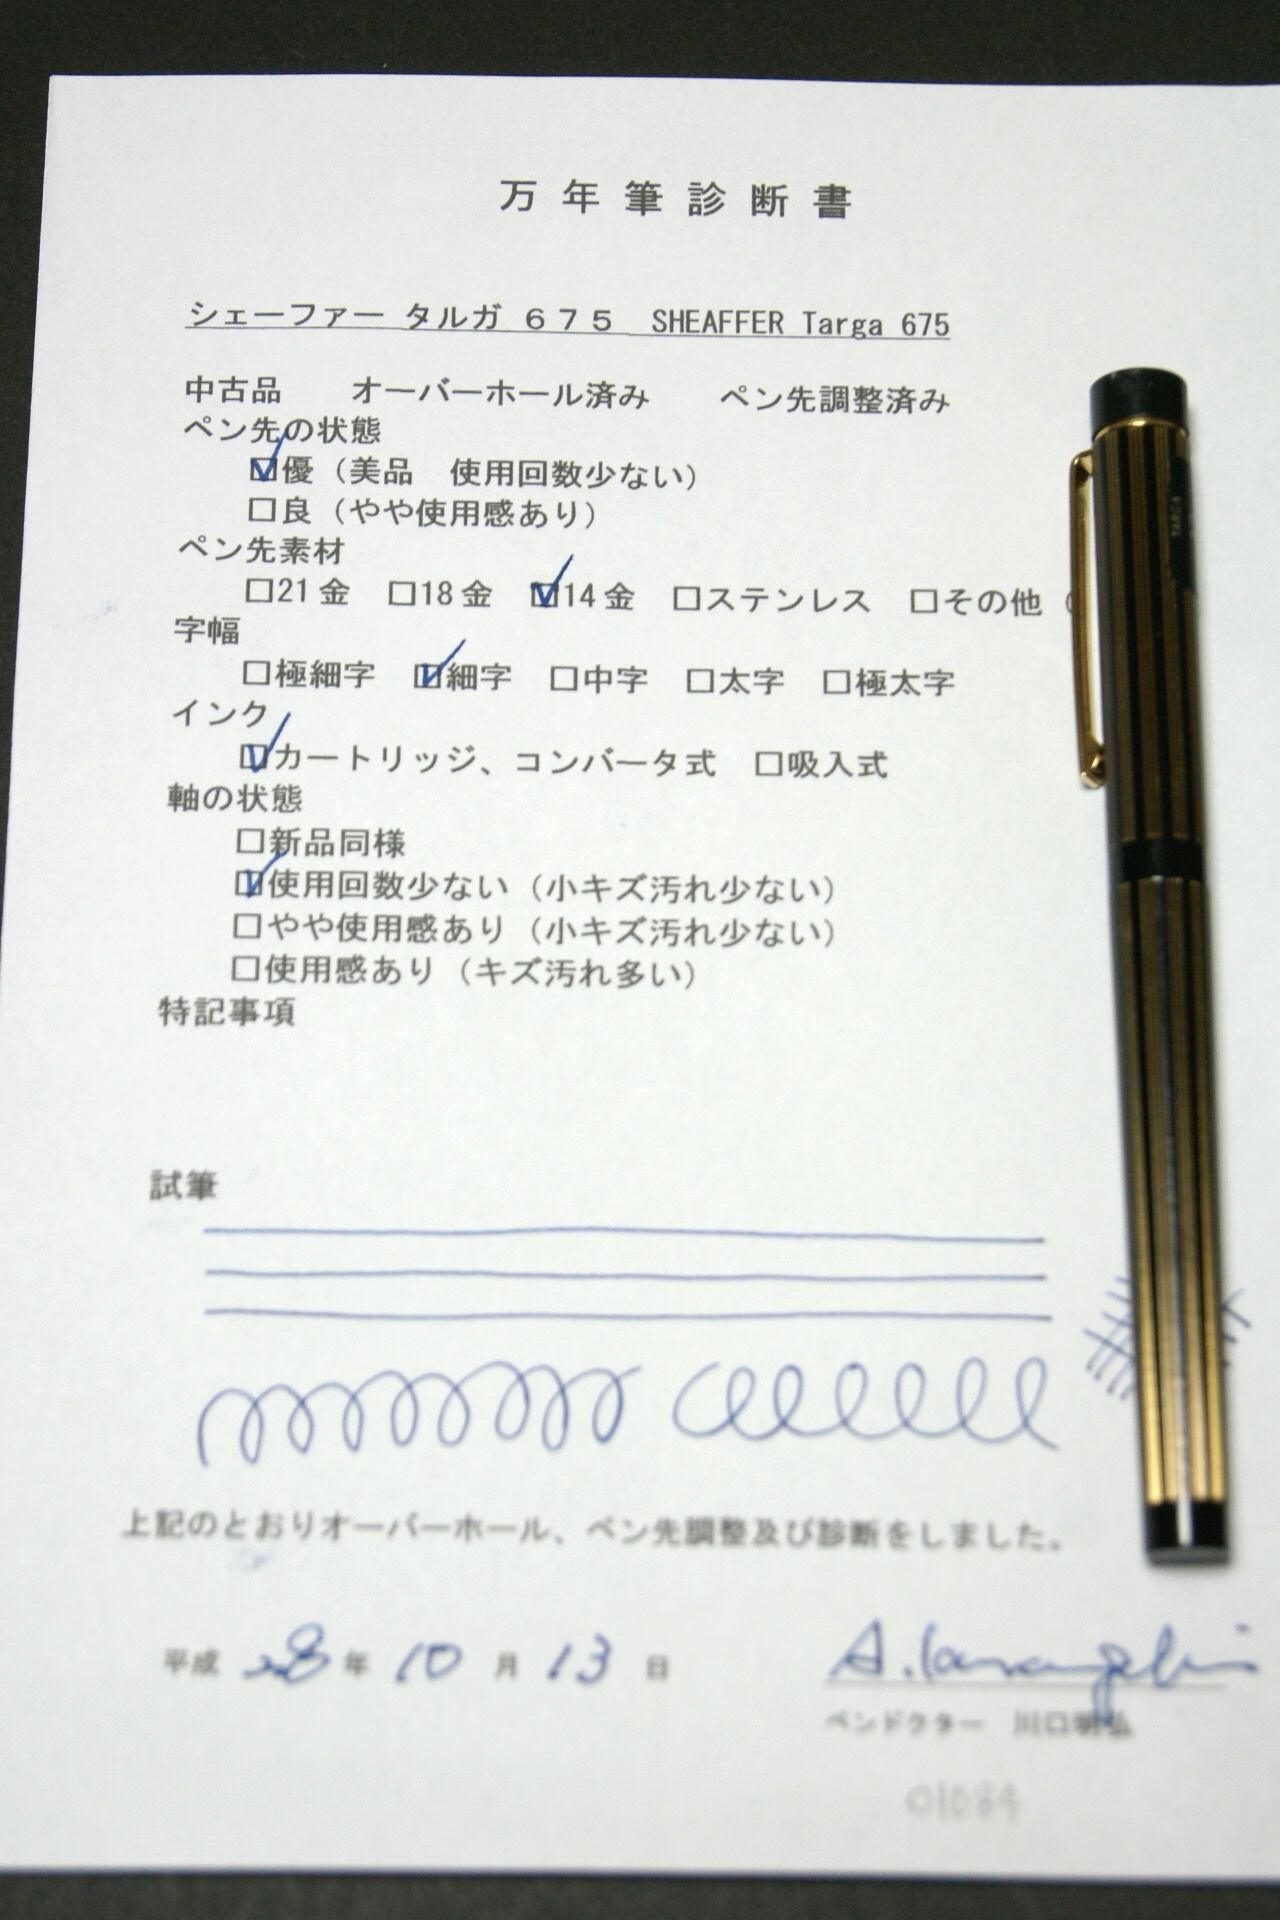 万年筆診断書
シェーファー タルガ 675 SHEAFFER Targa 675
中古品 オーバーホール済み ペン先調整済み
ペン先の状態
☑優（美品 使用回数少ない）
□良（やや使用感あり）
ペン先素材
□21金 □18金 ☑14金 □ステンレス □その他（
字幅
□極細字 ☑細字 □中字 □太字 □極太字
インク
☑カートリッジ、コンバータ式 □吸入式
軸の状態
□新品同様
☑使用回数少ない（小キズ汚れ少ない）
□やや使用感あり（小キズ汚れ少ない）
□使用感あり（キズ汚れ多い）
特記事項
試筆
上記のとおりオーバーホール、ペン先調整及び診断をしました。
平成 28 年 10 月 13 日
ペンドクター 川口明弘
01084
TARGA